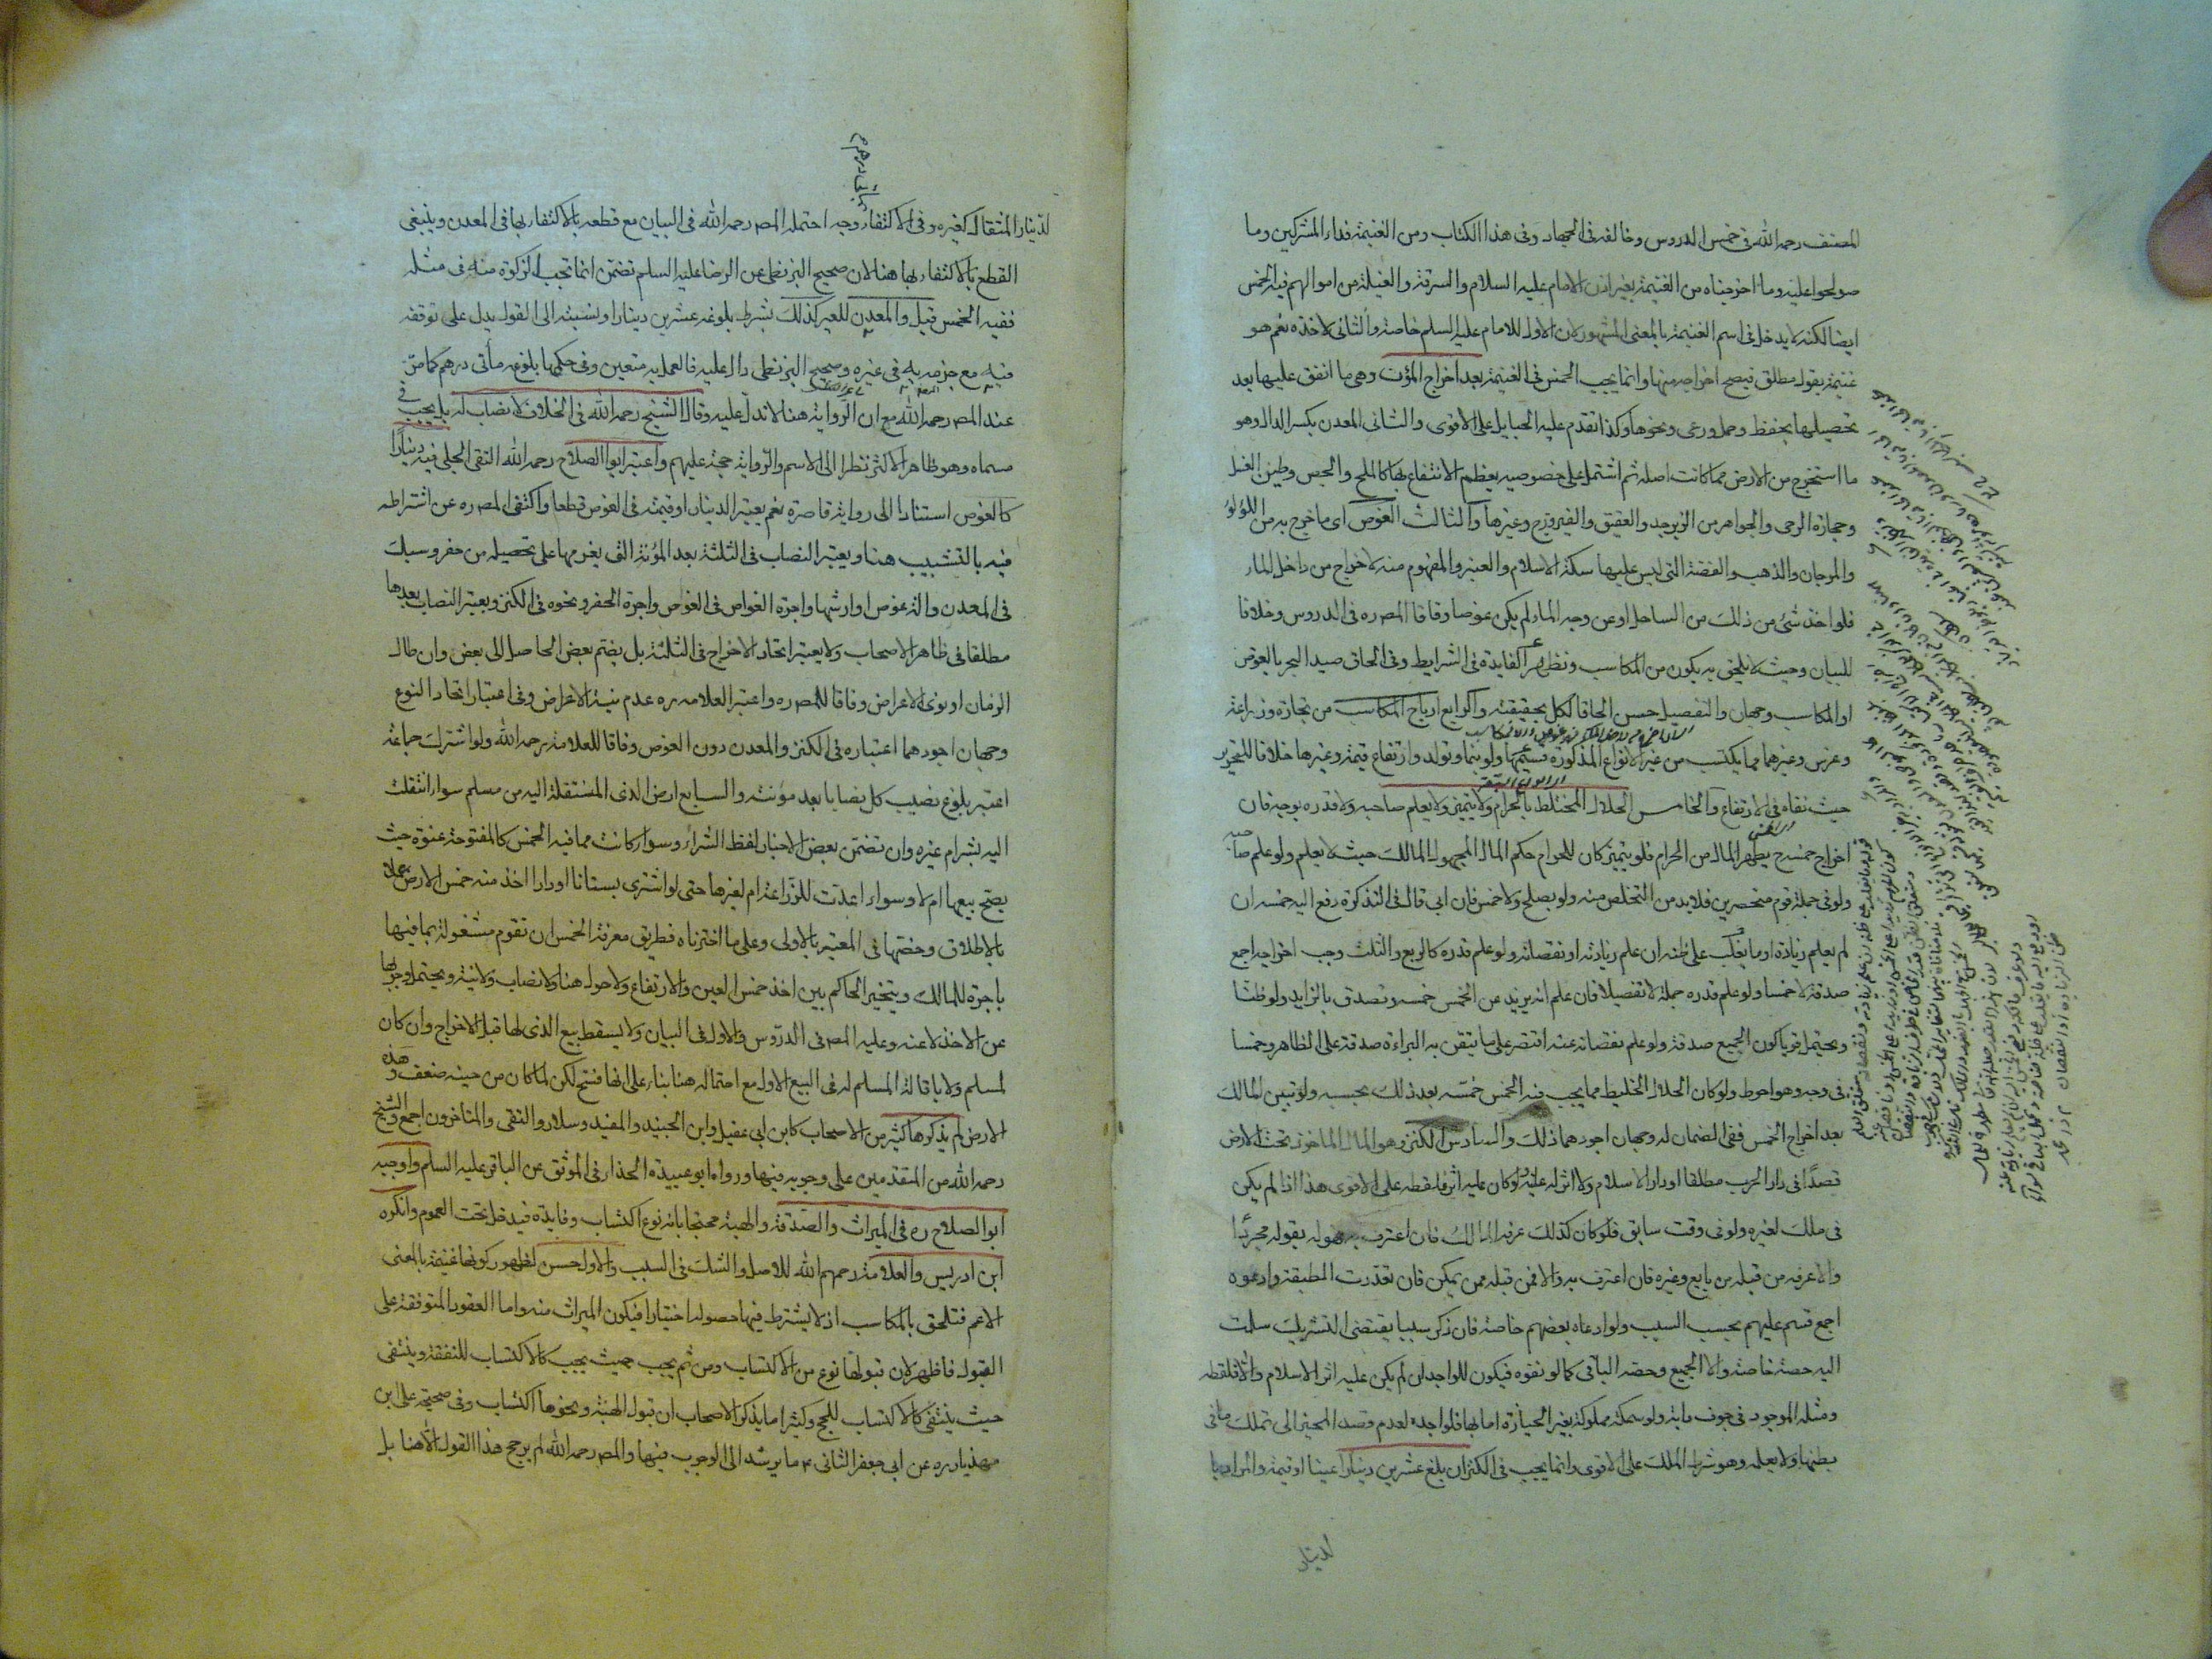 المصنف رحمه الله في خمس الدروس وخالفه في الجهاد وفي هذا الكتاب ومن الغنيمة فداء المشركين وما
صولحوا عليه وما اخرجناه من الغنيمة بغير اذن الامام عليه السلام والسرقة والغيلة من اموالهم فيه الخمس
ايضا لكنه لا يدخل في اسم الغنيمة بالمعنى المشهور لان الاول للامام عليه السلم خاصة والثاني لاخذه نعم هو
غنيمة بقول مطلق فيصح اخراجه منها وانما يجب الخمس في الغنيمة بعد اخراج المؤن وهي ما انفق عليها بعد
تحصيلها بحفظ وحمل ورعي ونحوها وكذا تقدم عليه الجبايل على الاقوى والثاني المعدن بكسر الدال وهو
ما استخرج من الارض مما كانت اصله ثم اشتمل على خصوصيه يعظم الانتفاع بها كالملح والجص وطين الغسل
وحجارة الرحى والجواهر من الزبرجد والعقيق والفيروزج وغيرها والثالث الغوص اي ما خرج به من اللؤلؤ
والمرجان والذهب والفضة التي ليس عليها سكة الاسلام والعنبر والمفهوم منه لاخراج من داخل الماء
فلو اخذ شئ من ذلك من الساحل او عن وجه الماء لم يكن غوصا وفاقا المصره في الدروس وخلافا
للبيان وحيث لا يلحق به يكون من المكاسب وتظهر الفايدة في الشرايط وفي الحاق صيد البحر بالغوص
او المكاسب وجهان والتفصيل حسن الحاقا لكل بحقيقته والرابع ارباح المكاسب من تجارة وزراعة
وغرس وغيرهما مما يكتسب من غير الانواع المذكورة قسيمها ولو بنماء وتولد وارتفاع قيمة وغيرها خلافا للتحرير
حيث نفاه في الارتفاع والخامس الحلال المختلط بالحرام ولا يتميز ولا يعلم صاحبه ولا قدره بوجه فان
اخراج خمسه ح يطهر المال من الحرام فلو يتميز كان للحرام حكم المال المجهول المالك حيث لا يعلم ولو علم صاحبه
ولو في جملة قوم منحصرين فلا بد من التخلص منه ولو بصلح ولا خمس فان ابى قال في التذكرة دفع اليه خمسه ان
لم يعلم زيادة او ما يغلب على ظنه ان علم زيادته او نقصانه ولو علم قدره كالربع والثلث وجب اخراجه اجمع
صدقة لا خمسا ولو علم قدره جملة لا تفصيلا فان علم انه يزيد عن الخمس خمسه وتصدق بالزايد ولو ظنا
ويحتمل قويا كون الجميع صدقة ولو علم نقصانه عنه اقتصر على ما يتيقن به البراءة صدقة على الظاهر وخمسا
في وجه وهو احوط ولو كان الحلال الخليط مما يجب فيه الخمس خمسه بعد ذلك بحسبه ولو تبين المالك
بعد اخراج الخمس ففي الضمان له وجهان اجودهما ذلك والسادس الكنز وهو المال الماخوذ تحت الارض
قصدا في دار الحرب مطلقا او دار الاسلام ولا اثر له عليه ولو كان عليه اثر فلقطه على الاقوى هذا اذا لم يكن
في ملك لغيره ولو في وقت سابق فلو كان كذلك عرفه المالك فان اعترف به فهو له بقوله مجردا
والا عرفه من قبله من بايع وغيره فان اعترف به والا فمن قبله ممن يمكن فان تعذرت المطبقة وادعوه
اجمع قسم عليهم بحسب السبب ولو ادعاه بعضهم خاصة فان ذكر سببا يقتضي التشريك سلمت
اليه حصته خاصة والا الجميع وحصة الباقي كما لو نفوه فيكون للواجد ان لم يكن عليه اثر الاسلام والا فلقطه
ومثله الموجود في جوف دابة ولو سمكة مملوكة بغير الحيازة اما بها فلواجده لعدم قصد المحيز الى تملك ما في
بطنها ولا يعلمه وهو شرط الملك على الاقوى وانما يجب في الكنز ان بلغ عشرين دينارا عينا او قيمة والمراد با
لدينار
لدينار المثقال كغيره وفي الاكتفاء وجه احتمله المصر رحمه الله في البيان مع قطعه بالاكتفاء بها في المعدن وينبغي
القطع بالاكتفاء بها هنا لان صحيح البزنطي عن الرضا عليه السلم تضمن انما تجب الزكوة منه في مثله
ففيه الخمس قيل والمعدن للغير كذلك بشرط بلوغه عشرين دينارا ونسبته الى القول يدل على توقفه
فيه مع جزمه به في غيره وصحيح البزنطي دال عليه فالعمل به متعين وفي حكمها بلوغه مأتي درهم كما مر
عند المصر رحمه الله مع ان الرواية هنا لا تدل عليه وقال الشيخ رحمه الله في الخلاف لا نصاب له بل يجب في
مسماه وهو ظاهر الاكثر نظرا الى الاسم والرواية حجة عليهم واعتبر ابوا الصلاح رحمه الله التقي الحلبي فيه دينارا
كالغوص استنادا الى رواية قاصرة نعم يعتبر الدينار او قيمته في الغوص قطعا واكتفى المصره عن اشتراطه
فيه بالتشبيب هنا ويعتبر النصاب في الثلثة بعد المؤنة التي يغرمها على تحصيله من حفر وسبك
في المعدن والة غوص او ارشها واجرة الغواص في الغوص واجرة الحفر ونحوه في الكنز ويعتبر النصاب بعدها
مطلقا في ظاهر الاصحاب ولا يعتبر اتحاد الاخراج في الثلثة بل يضم بعض الحاصل الى بعض وان طال
الزمان او نوى الاعراض وفاقا للمصره واعتبر العلامه ره عدم نية الاعراض وفي اعتبار اتحاد النوع
وجهان اجودهما اعتباره في الكنز والمعدن دون الغوص وفاقا للعلامة رحمه الله ولو اشترك جماعة
اعتبر بلوغ نصيب كل نصابا بعد مؤنته والسابع ارض الذمي المنتقلة اليه من مسلم سواء انتقلت
اليه بشراء ام غيره وان تضمن بعض الاخبار لفظ الشراء وسواء كانت مما فيه الخمس كالمفتوحة عنوة حيث
يصح بيعها ام لا وسواء اعدت للزراعة ام لغيرها حتى لو اشترى بستانا او دارا اخذ منه خمس الارض عملا
بالاطلاق وخصها في المعتبر بالاولى وعلى ما اخترناه فطريق معرفة الخمس ان تقوم مشغولة بما فيها
باجرة للمالك ويتخير الحاكم بين اخذ خمس العين والارتفاع ولا حول هنا ولا نصاب ولا نية ويحتمل وجوبها
عن الاخذ لا عنه وعليه المصر في الدروس والاول في البيان ولا يسقط ببيع الذمي لها قبل الاخراج وان كان
لمسلم ولا باقالة المسلم له في البيع الاول مع احتماله هنا بناء على انها فسخ لكن لما كان من حينه ضعف وهذه
الارض لم يذكرها كثير من الاصحاب كابن ابي عقيل وابن الجنيد والمفيد وسلار والتقي والمتاخرون اجمع والشيخ
رحمه الله من المتقدمين على وجوبه فيها ورواه ابو عبيدة الحذاء في الموثق عن الباقر عليه السلم واوجبه
ابو الصلاح ره في الميراث والصدقة والهبة محتجا بانه نوع اكتساب وفايدة فيدخل تحت العموم وانكره
ابن ادريس والعلامة رحمهم الله للاصل والشك في السبب والاول حسن لظهور كونها غنيمة بالمعنى
الاعم فتلحق بالمكاسب اذ لا يشترط فيها حصوله اختيارا فيكون الميراث منه واما العقود المتوقفة على
القبول فاظهر لان قبولها نوع من الاكتساب ومن ثم يجب حيث يجب كالاكتساب للنفقة وينتفي
حيث ينتفي كالاكتساب للحج وكثيرا ما يذكر الاصحاب ان قبول الهبة ونحوها اكتساب وفي صحيحة على ابن
مهذيار ره عن ابي جعفر الثاني ع ما يرشد الى الوجوب فيها والمصر رحمه الله لم يرجح هذا القول الا هنا بل